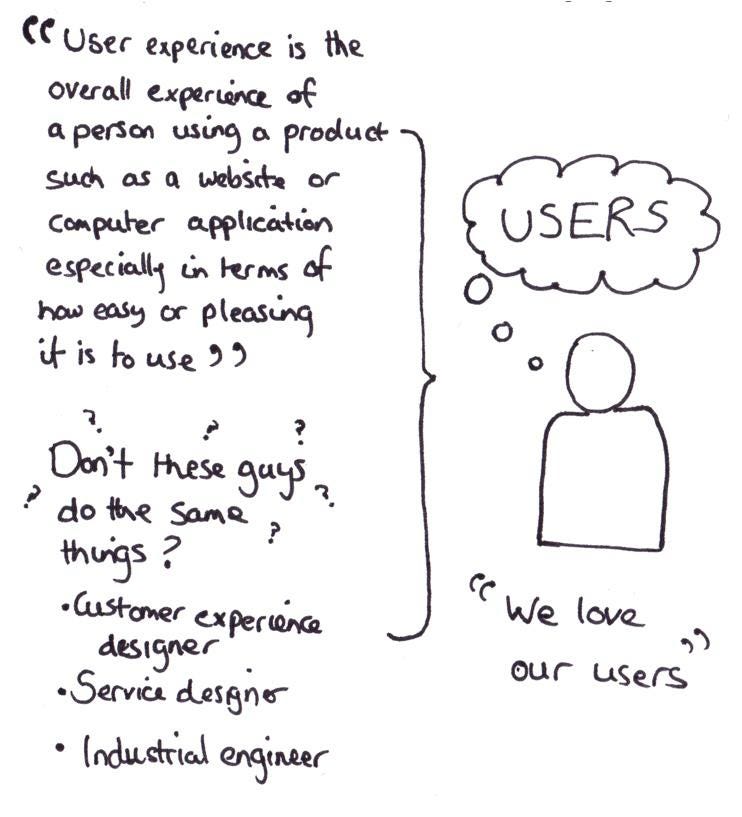 “User experience is the
overall experience of
a person using a product
such as a website or
computer application
especially in terms of
how easy or pleasing
it is to use”
? ? ?
Don't these guys
? ?
do the same
?
things?
• Customer experience
designer
• Service desgner
• Industrial engineer
USERS
“We love
our users”